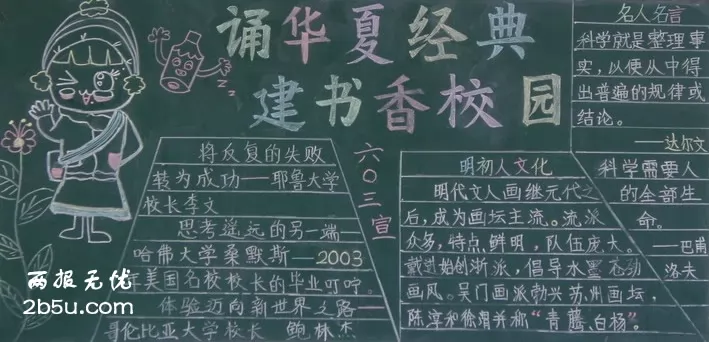 诵华夏经典
建书香校园
将反复的失败
转为成功——耶鲁大学
校长李文
思考遥远的另一端
哈佛大学桑默斯——2003
年美国名校校长的毕业叮咛。
体验迈向新世界之路——
哥伦比亚大学校长 鲍林杰
六〇三宣
明初人文化
明代文人画继元代之
后,成为画坛主流。流派
众多,特点鲜明,队伍庞大。
戴进始创浙派,倡导水墨苍劲
画风。吴门画派勃兴苏州画坛,
陈淳和徐渭并称“青藤、白杨”。
名人名言
科学就是整理事
实,以便从中得
出普遍的规律或
结论。
——达尔文
科学需要人
的全部生
命。
——巴甫
洛夫
两报无忧
2b5u.com